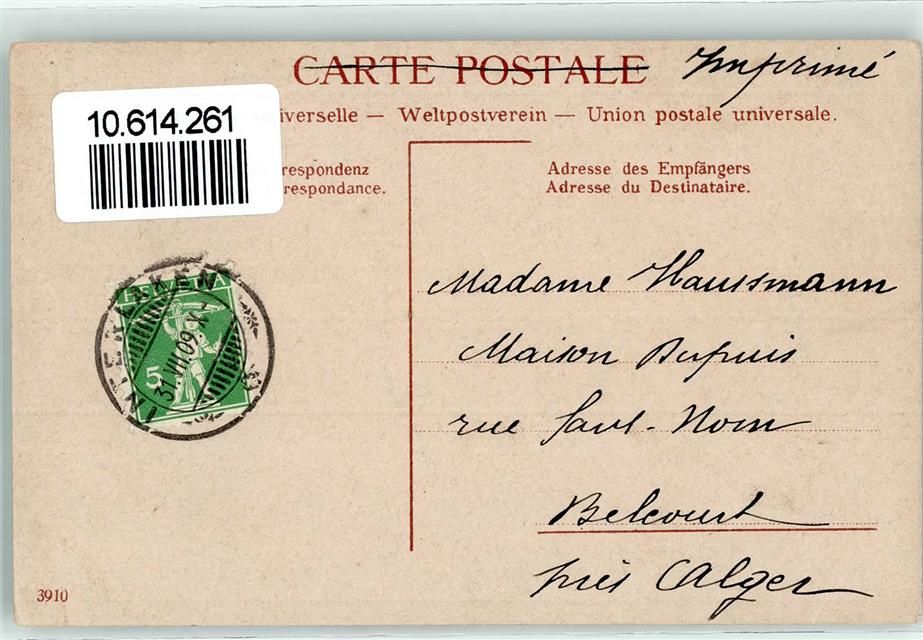 CARTE POSTALE Imprimé
10.614.261
iverselle — Weltpostverein — Union postale universale.
respondenz
respondance.
Adresse des Empfängers
Adresse du Destinataire.
INTERLAKEN
HELVETIA
5
31.VII.09.X-
Madame Haussmann
Maison Dupuis
rue Sans-Nom
Belcourt
près Alger
3910